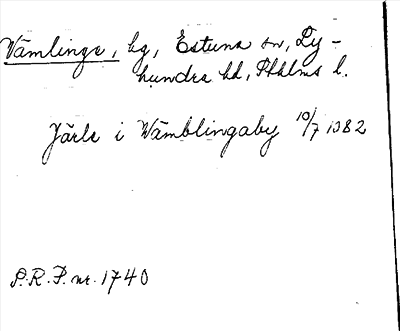 Vämlinge, bg, Estuna sn, Ly-
hundra hd, Sthlms l.
Järle i Wämblingaby 10/7 1382
S.R.P. nr. 1740